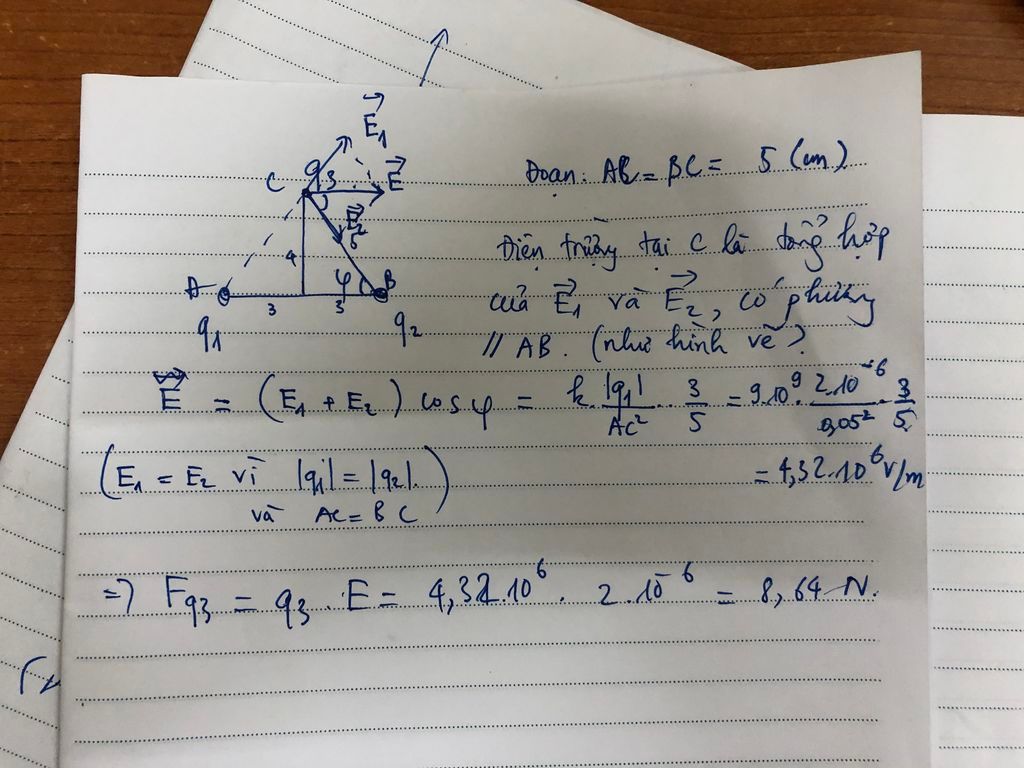 E₁
C q3 E
E₂
5
4
A φ B
3 3
q₁ q₂
Đoạn: AC = BC = 5 (cm)
Điện trường tại C là tổng hợp
của E₁ và E₂, có phương
// AB. (như hình vẽ).
E = (E₁ + E₂) cos φ = k. |q₁| / AC² . 3/5 = 9.10⁹. 2.10⁻⁶ / 0,05² . 3/5
= 4,32.10⁶ V/m
(E₁ = E₂ vì |q₁| = |q₂|.
và AC = BC)
=> Fq3 = q3 . E = 4,32.10⁶ . 2.10⁻⁶ = 8,64 N.